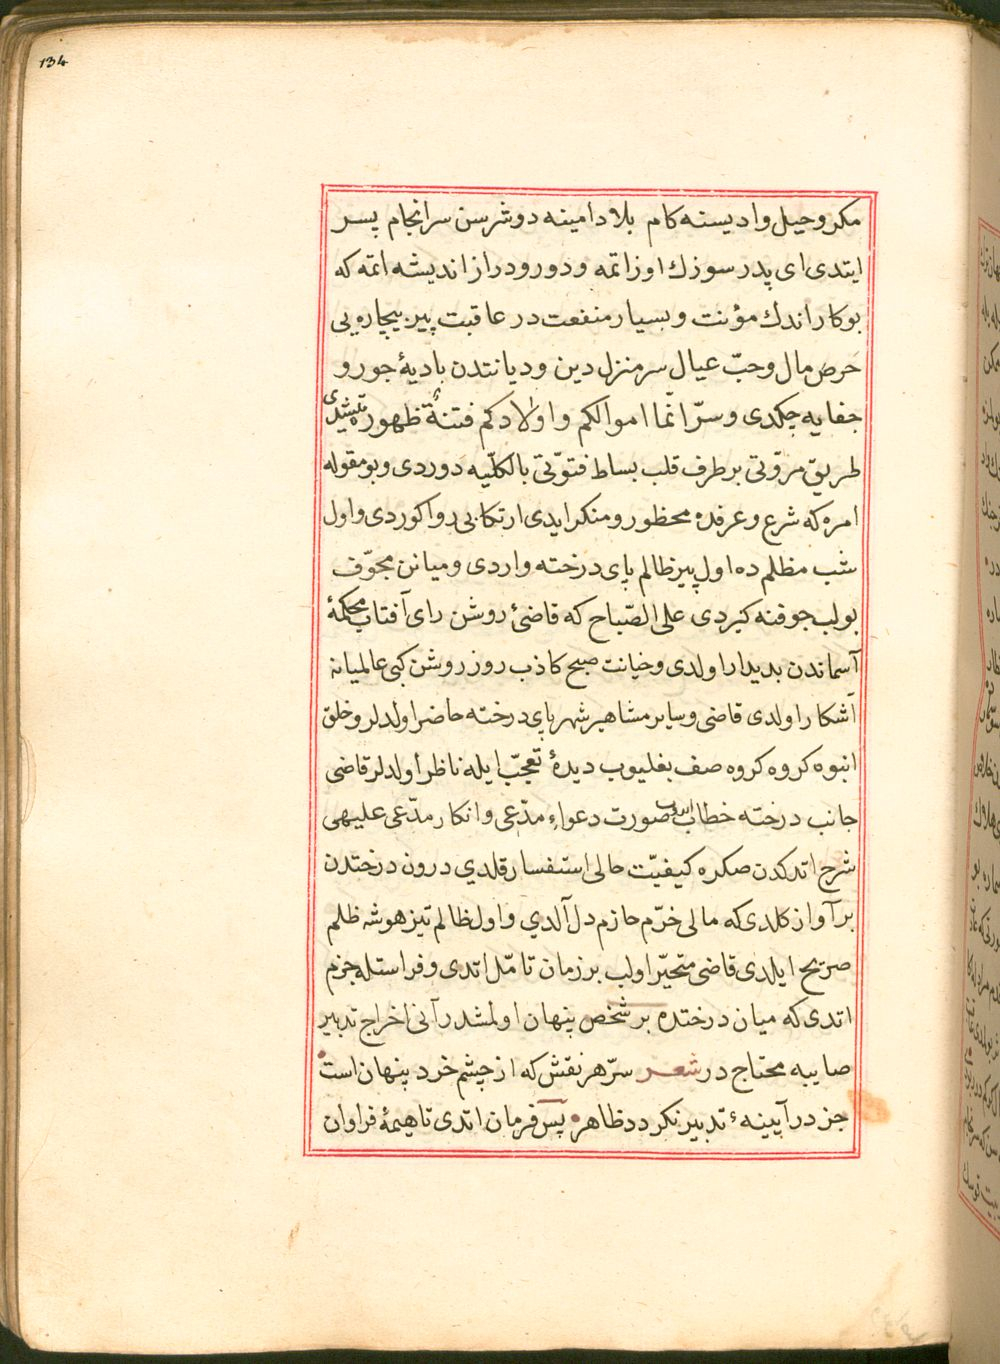 134
مكر وحيل واديسنه كام بلا دامينه دوشرسن سرانجام پسر
ايتدى اى پدر سوزك اوز اتمه ودور ودراز انديشه اتمه كه
بو كار اندك مؤنت وبسيار منفعت در عاقبت پير بيچاره يى
حرص مال وحبّ عيال سر منزل دين وديانتدن باديۀ جور و
جفايه چكدى وسرّ انّما اموالكم واولادكم فتنةٌ ظهوره يتشدى
طريق مروّتى بر طرف قلب بساط فتوّتى بالكلّيه دوردى وبو مقوله
امره كه شرع وعرفده محظور ومنكر ايدى ارتكابى روا كوردى واول
شب مظلم ده اول پير ظالم پاى درخته واردى وميانن مجوّف
بولب جوفنه كيردى على الصّباح كه قاضئ روشن راى آفتاب محكمۀ
آسماندن بديدار اولدى وخيانت صبح كاذب روز روشن كبى عالميانه
آشكار اولدى قاضى وساير مشاهير شهر پاى درخته حاضر اولدلر وخلق
انبوه كروه كروه صف بغليوب ديدۀ تعجّب ايله ناظر اولدلر قاضى
جانب درخته خطاب ايدوب صورت دعواء مدّعى وانكار مدّعى عليهى
شرح اتدكدن صكره كيفيّت حالى استفسار قلدي درون درختدن
بر آواز كلدى كه مالى خرّم حازم دل آلدي واول ظالم تيز هوشه ظلم
صريح ايلدى قاضى متحيّر اولب بر زمان تامّل اتدى وفراستله جزم
اتدى كه ميان درختده بر شخص پنهان اولمشدر آنى اخراج تدبير
صايبه محتاج در شعر سرّ هر نقش كه از چشم خرد پنهان است
جز در آيينهء تدبير نكردد ظاهر پس فرمان اتدى تا هيمۀ فراوان